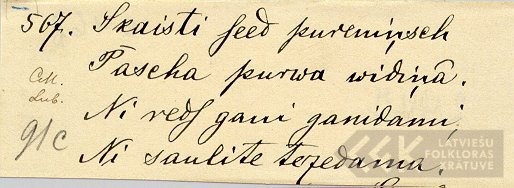 567. Skaisti seed pureniņsch
Pascha purwa widiņâ.
Ni redſ gani ganidami,
Ni saulite tezedama.
91c
LATVIEŠU
FOLKLORAS
KRĀTUVE